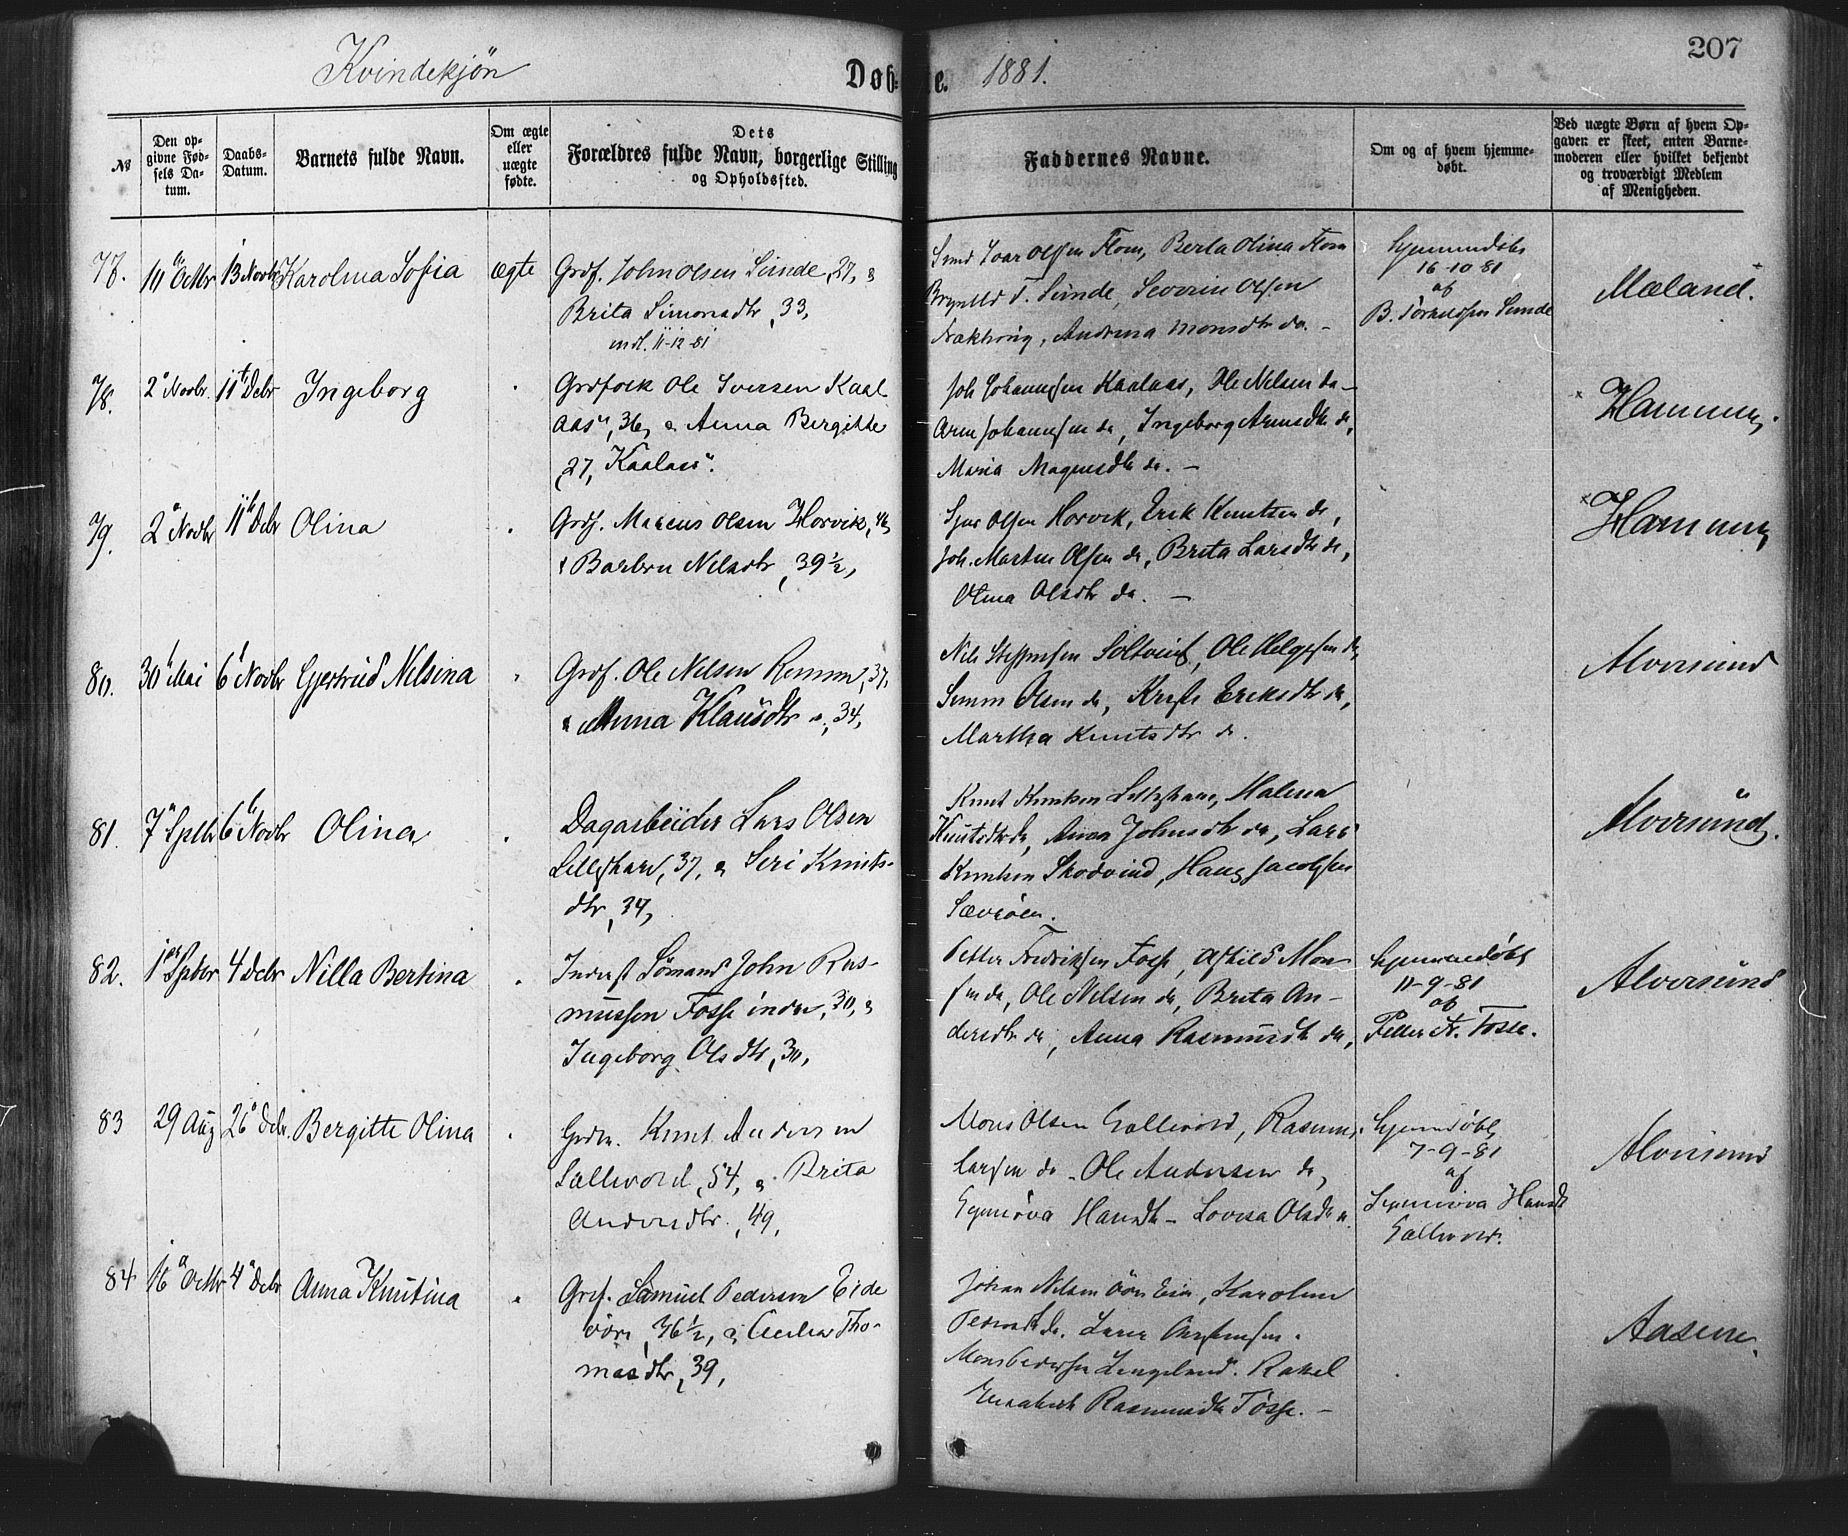 Kvindekjön
Døb-
e. 1881.
207
№
Den op-
givne Fød-
sels Da-
tum.
Daabs-
Datum.
Barnets fulde Navn.
Om ægte
eller
uægte
fødte.
Dets
Forældres fulde Navn, borgerlige Stilling
og Opholdssted.
Faddernes Navne.
Om og af hvem hjemme-
døbt.
Ved uægte Børn af hvem Op-
gaven er skeet, enten Barne-
moderen eller hvilket bekjendt
og troværdigt Medlem
af Menigheden.
77. 11 Octbr 13 Novbr Karolina Sofia ægte Grdf. John Olsen Sunde, 27, &
Brita Simonsdtr, 33,
indl. 11-12-81
Ivar Olsen Flom, Berta Olina Flom
T. Sunde, Severin Olsen
Andrina Monsdtr do. -
Hjemmedöbt
16-10-81
af
B. Torkildsen Sunde
Mæland.
78. 2 Novbr. 11t Debr Ingeborg
Grdfolk Ole Iversen Kaal-
aas, 36, & Anna Bergitte
27, Kaalaas.
Joh. Johannesen Kaalaas, Ole Nelsen do -
Arne Johannesen do, Ingeborg Arnesdtr do,
Maria Magnusdtr do. -
Hammer.
79. 2 Novbr 11t Debr Olina
Grdf. Marcus Olsen Horvik,
& Barbru Nelsdtr, 39½,
Olsen Horvik, Erik Knutsen do,
Joh. Martin Olsen do, Brita Larsdtr do,
Olina Olsdtr do. -
Hammer
80. 30t Mai 6t Novbr Gjertrud Nelsina
Grdf. Ole Nelsen Remme, 37,
& Anna Klausdtr, 34,
Nils Steffensen Soltveit, Ole Helgesen do,
Olsen do, Eriksdtr do,
Martha Knutsdtr do.
Alversund
81. 7 Sptbr 6t Novbr Olina
Dagarbeider Lars Olsen
Lilleskare, 37, & Seri Knuts-
dtr, 34,
Knut Knutsen Lilleskare, Malena
Knutsdtr do, Anna Johnsdtr do, Lars
Knutsen Skodvind, Hans Jacobsen
Sævröen.
Alversund.
82. 1 Sptbr 4 Debr Nilla Bertina
Inderst Sömand John Ras-
mussen Fosse indre, 30, &
Ingeborg Olsdtr, 30,
Petter Fredriksen Fosse, Mon-
sen do, Ole Nelsen do, Brita An-
dersdtr do, Anna Rasmusdtr do,
Hjemmedöbt
11-9-81
af
Petter Fr. Fosse.
Alversund
83 29 Aug 26 Debr. Bergitte Olina
Grdm. Knut Andersen
Sællevold, 54, & Brita
Andersdtr., 49,
Mons Olsen Sællevold, Rasmus
Larsen do. Ole Andersen do,
Hansdtr - Lovisa Olsdtr
Hjemdöbt
7-9-81
af
Hansdtr
Alversund
84 16 Octbr 4 Debr Anna Knutina
Grdf. Samuel Pedersen Eide
övre, 36½, & Cecilia Tho-
masdtr, 39,
Johan Nelsen övre Eide, Karoline
Mons Pedersen Lengeland. Rakel
Elisabeth Rasmusdtr Fosse. -
Aasene.